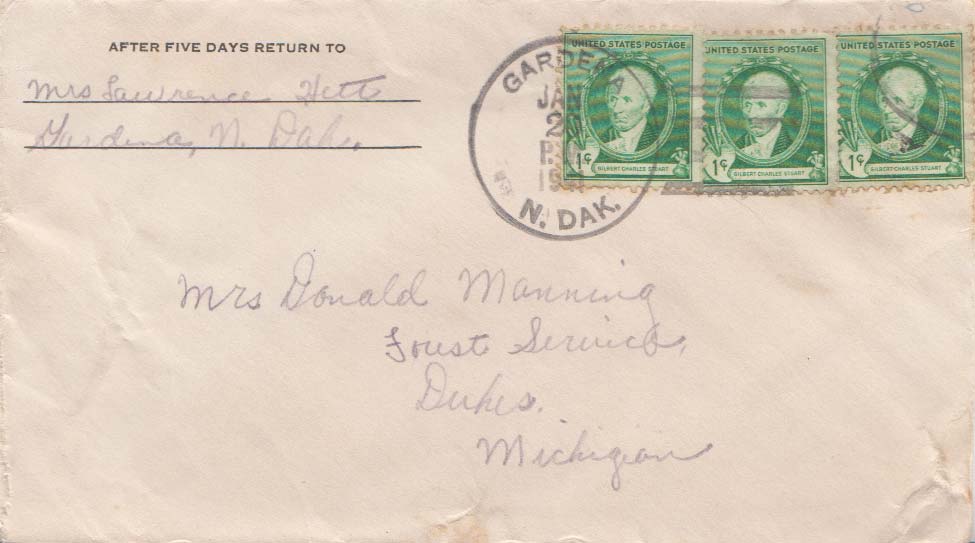 AFTER FIVE DAYS RETURN TO
Mrs Lawrence Hett
Gardena, N. Dak.
GARDENA
JAN
2
P.M.
19
N. DAK.
UNITED STATES POSTAGE
1¢
GILBERT CHARLES STUART
UNITED STATES POSTAGE
1¢
GILBERT CHARLES STUART
UNITED STATES POSTAGE
1¢
GILBERT CHARLES STUART
Mrs Donald Manning
Forest Service,
Dukes.
Michigan